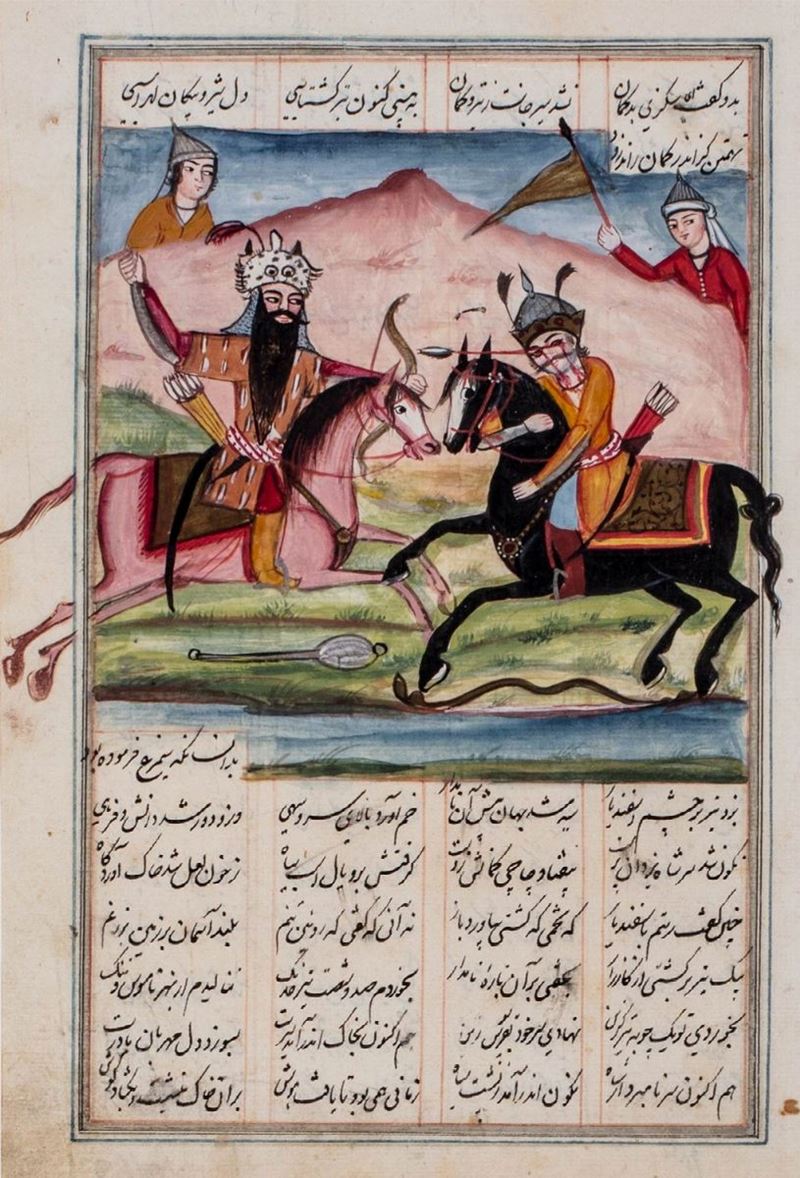 بدو گفت شاه سگزی بدگمان نشد سیر جانت ز تیر و کمان به بینی کنون تیر گشتاسپی دل شیر و پیکان لهراسپی
تهمتن گز اندر کمان راند زود
بدانسان که سیمرغ فرموده بود
بزد تیر بر چشم اسفندیار سیه شد جهان پیش آن نامدار خم آورد بالای سرو سهی وزو دور شد دانش و فرهی
نگون شد سر شاه یزدان پرست بیفتاد چاچی کمانش ز دست گرفتش بر و یال اسپ سیاه ز خون لعل شد خاک آوردگاه
چنین گفت رستم باسفندیار که تخمی که کشتی بیاورد بار نه آنی که گفتی که روئین تنم بلند آسمان بر زمین بر زنم
بیک تیر برگشتی از کارزار بخفتی بر آن باره نامدار بخوردم صد و شصت تیر خدنگ ننالیدم از بهر ناموس و ننگ
بخوردی تو یک چوبه تیر گزین نهادی سر خود بقربوس زین هم اکنون بخاک اندر آید سرت بسوزد دل مهربان مادرت
هم اکنون سر نامبردار شاه نگون اندر آمد ز پشت سیاه زمانی همی بود تا یافت هوش بران خاک بنشست و بگشاد گوش